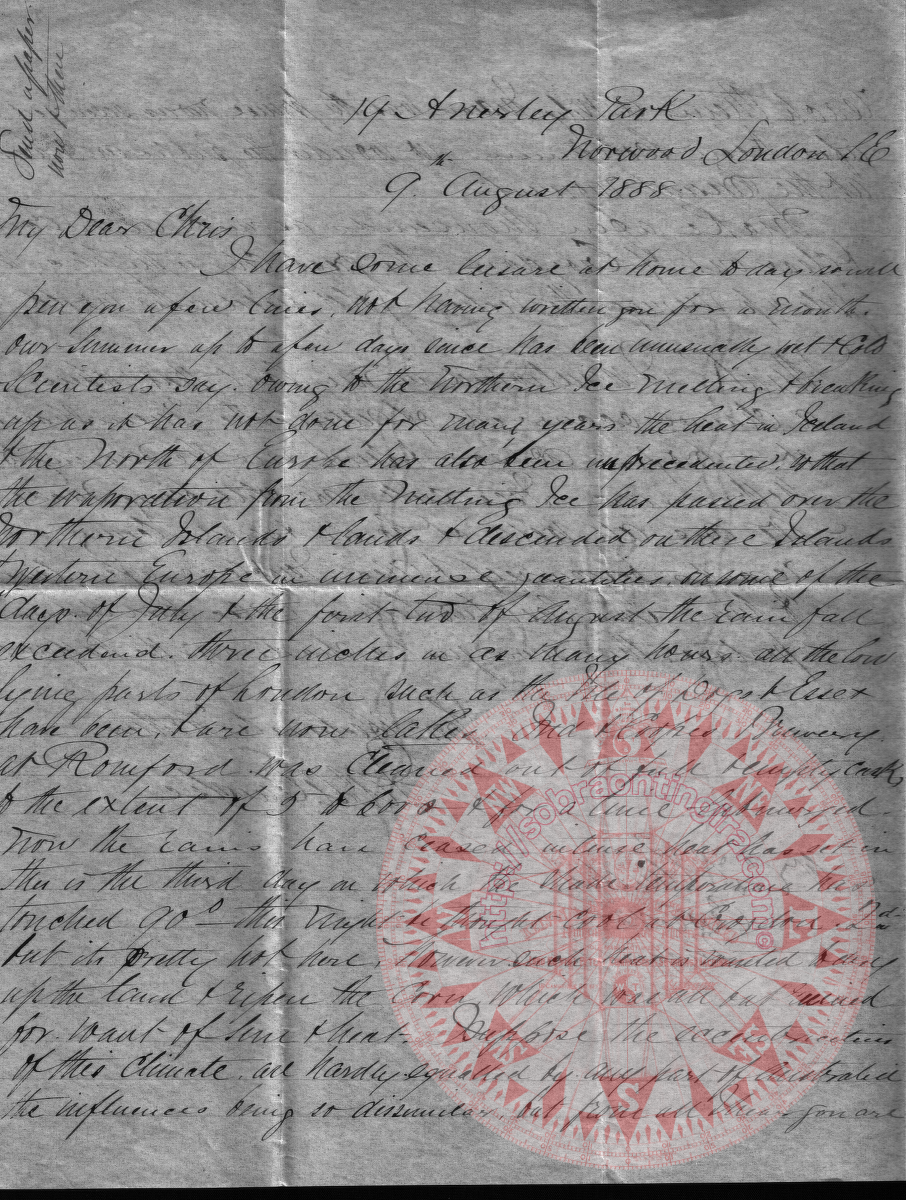 Send a paper
now & then
19 Anerley Park
Norwood London SE
9th August 1888
My Dear Chris
I have some leisure at home to day so will
pen you a few lines, not having written you for a month.
Our Summer up to a few days since has been unusually wet & Cold
Scientists say owing to the Northern Ice melting & breaking
up as it has not done for many years the heat in Iceland
& the North of Europe has also been unprecedented. so that
the evaporation from the melting Ice has passed over the
Northern Islands & lands & descended on these Islands
Western Europe in immense quantities. on some of the
days of July & the first two of August the rain fall
exceeded three inches in as many hours. all the low
lying parts of London such as the Isle of Dogs & Essex
have been, & are now lakes. Ind & Coopes Brewery.
at Romford was Cleaned out of full & empty casks
to the extent of 5 to 6000 &
Now the rains have ceased intense heat has set in
this is the third day on which the shade temperature has
touched 90° – this might be thought cool at
but its pretty hot here, However such heat is wanted to dry
up the land & ripen the Corn which was all but ruined
for want of Sun & heat. I suppose the eccentricities
of this Climate. are hardly equalled by any part of Australia
the influences being so dissimilar, but from all I hear you are